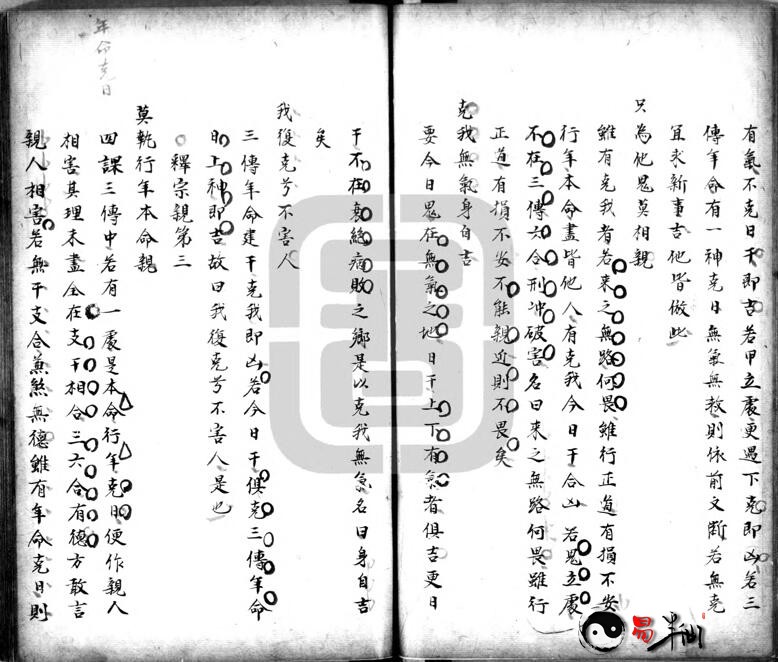 有氣不克日干即吉若甲立處更遇下克即凶若三
傳年命有一神克日無氣無救則依前文斷若無克
宜求新事吉他皆倣此
只為他鬼莫相親
雖有克我者若來之無路何畏雖行正道有損不安
行年本命盡皆他人有克我今日干合凶若鬼立處
不在三傳六合刑冲破害名曰來之無路何畏雖行
正道有損不安不能親近則不畏矣
克我無氣身自吉
要今日鬼在無氣之地日干上下有氣者俱吉更日
干不在衰絕病敗之鄉是以克我無氣名曰身自吉
矣
我復克兮不害人
三傳年命建干克我即凶若今日干俱克三傳年命
日上神即吉故曰我復克兮不害人是也
釋宗親第三
莫執行年本命親
四課三傳中若有一處是本命行年克日便作親人
相害其理未盡全在支干相合三六合有德方敢言
親人相害若無干支合兼煞無德雖有年命克日則
年命克日
易半仙